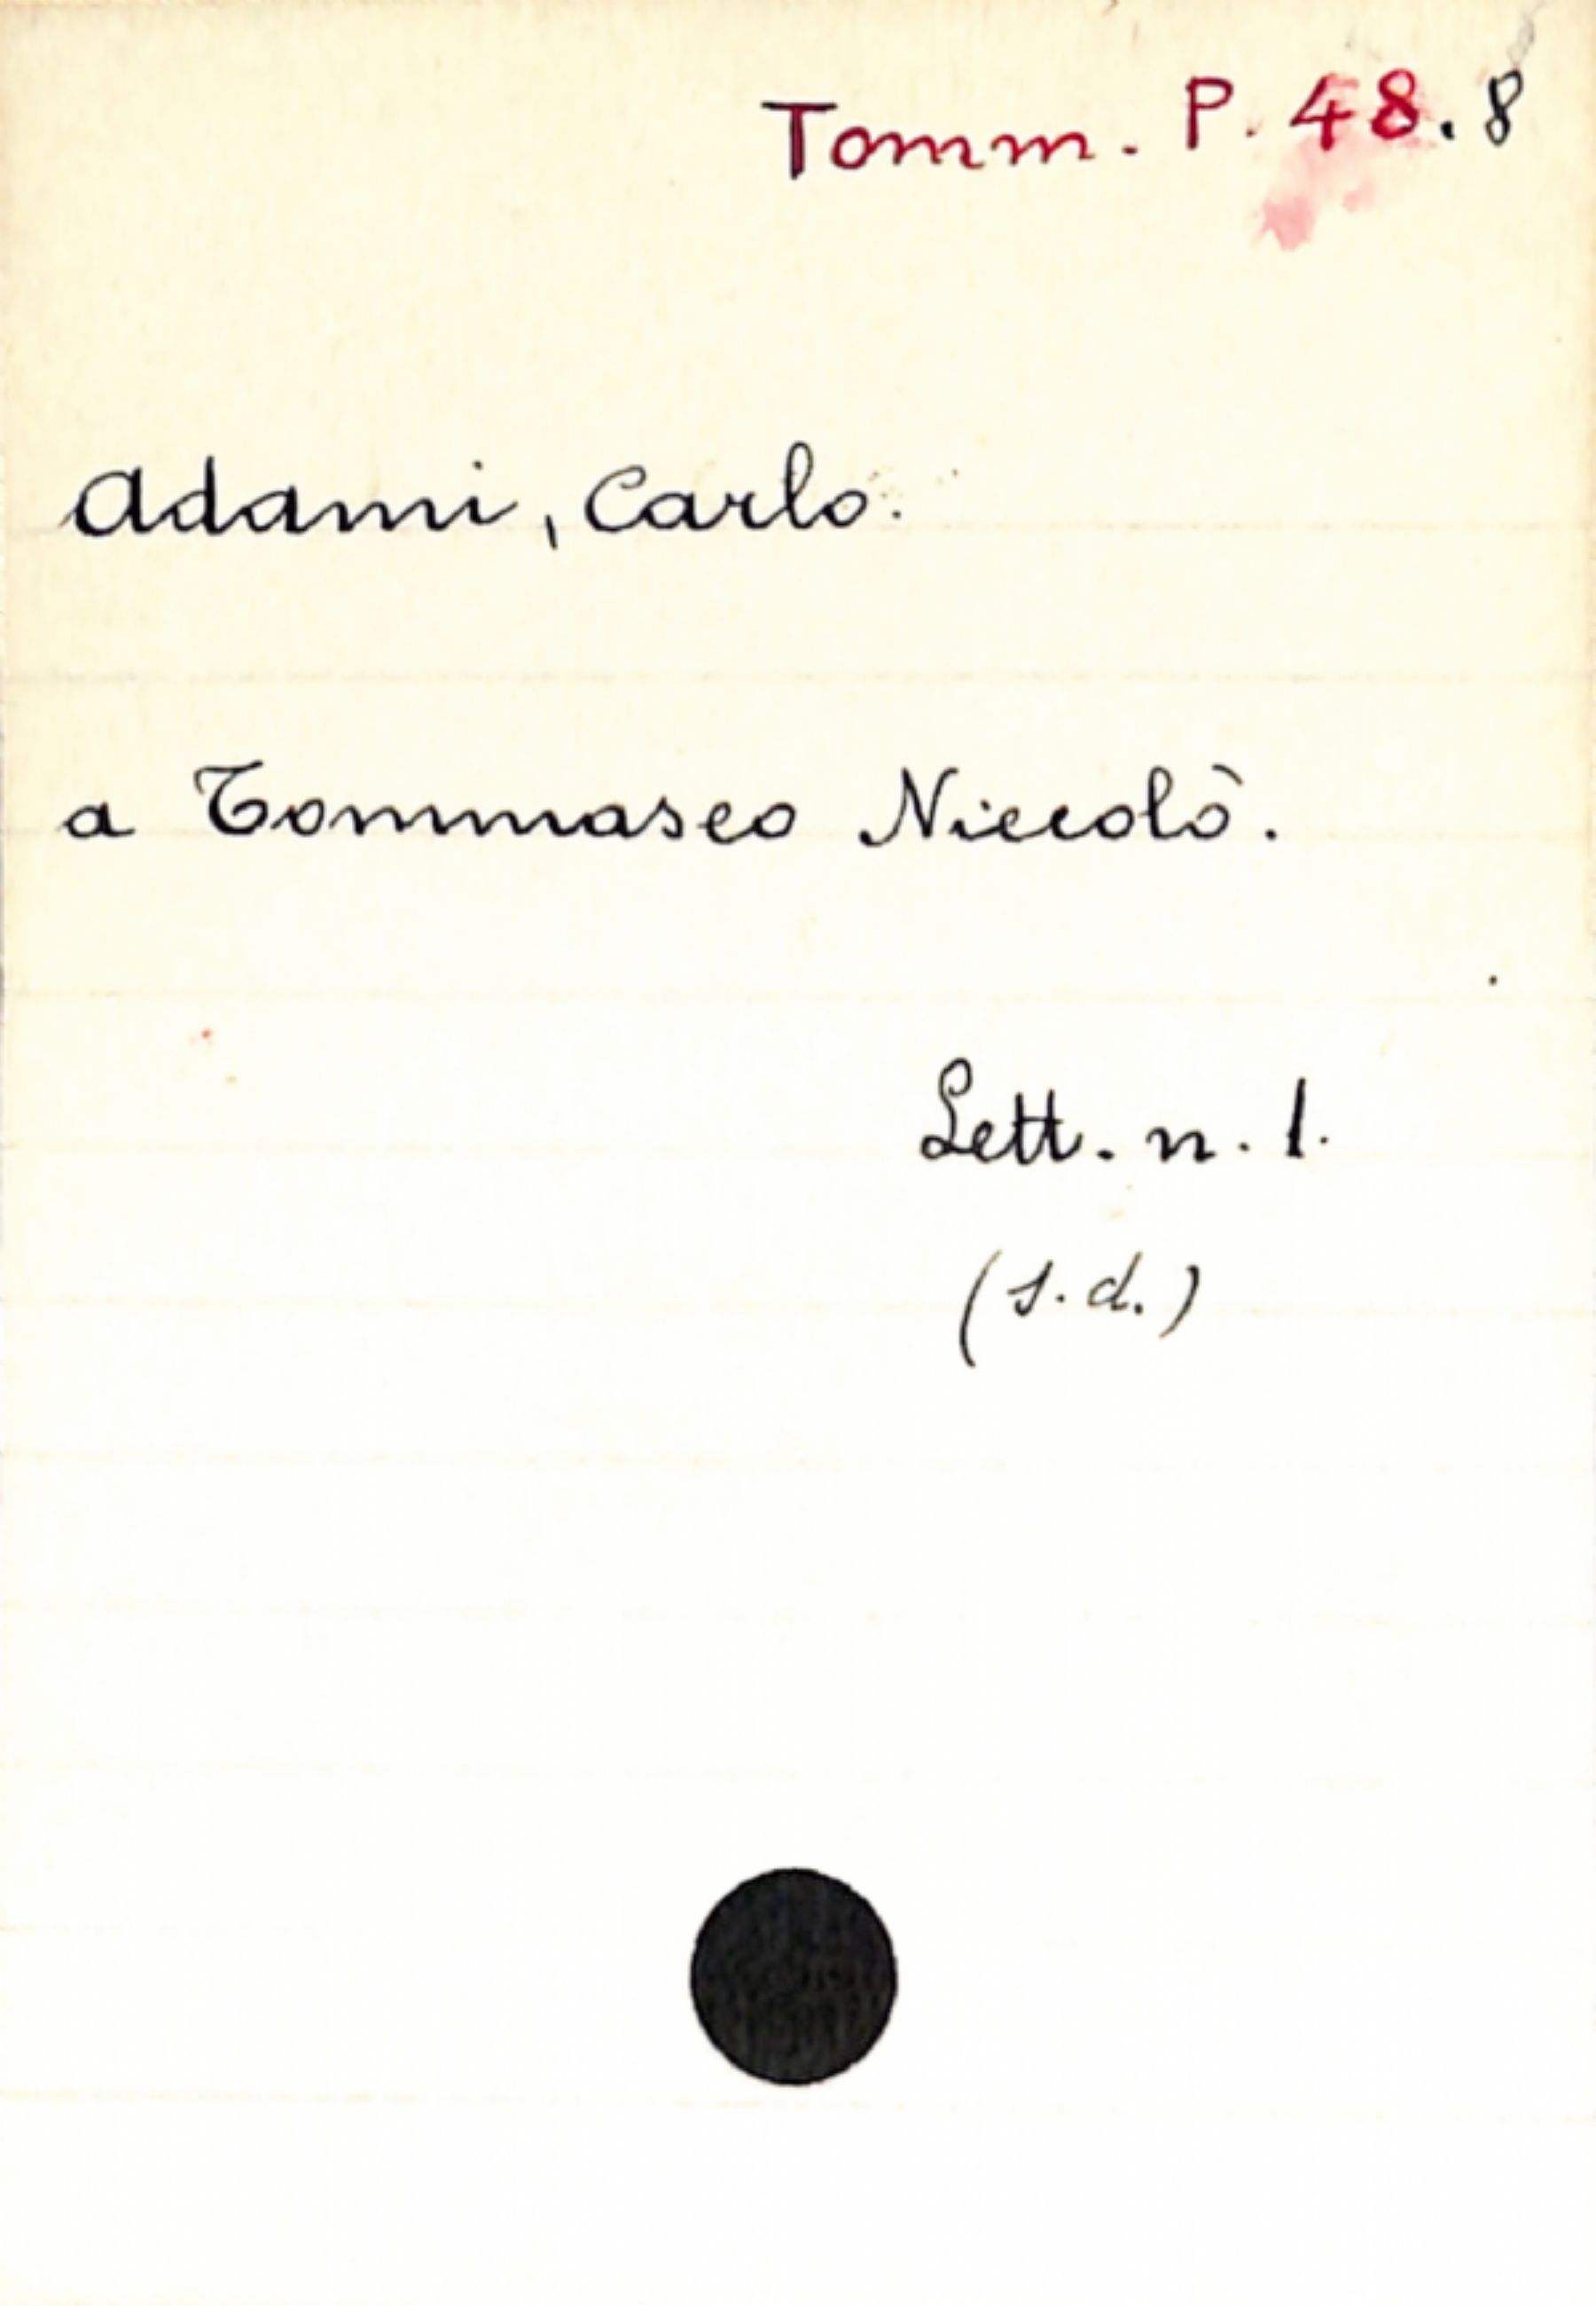 Tomm. P. 48.8
Adami, Carlo.
a Tommaseo Niccolò.
Lett. n. 1.
(s.d.)